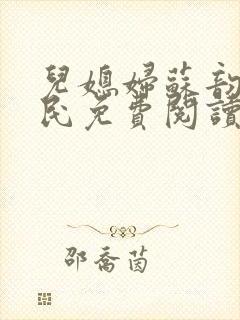 兒媳婦蘇韵
民免費閱讀
邵喬茵